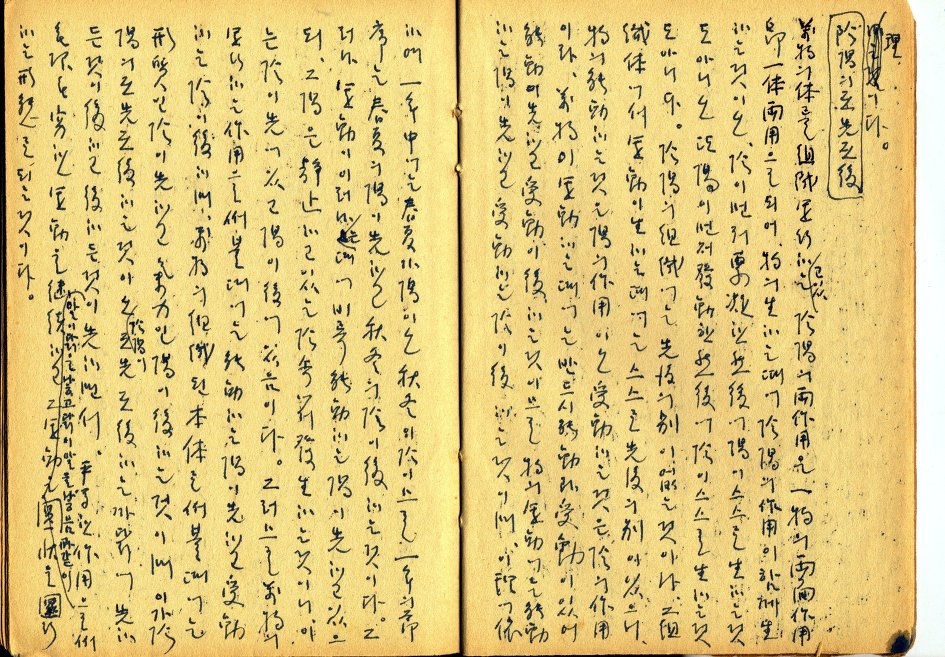 理
이다。
陰陽의 無先無後
萬物의 体를 組織 運行하는 陰陽의 両作用은 一物의 両面作用
即 一体両用으로 되어, 物의 生하는 때에 陰陽의 作用이 함께 生
하는 것이오, 陰이 먼저 専 凝한 然後에 陽이 스스로 生하는 것
도 아니오 또 陽이 먼저 發動한 然後에 陰이 스스로 生하는 것
도 아니다。陰陽의 組織에는 先後의 別이 없는 것이나, 그 組
織体에서 運動이 生하는 때에는 스스로 先後의 別이 있으니,
物의 能動하는 것은 陽의 作用이오 受動하는 것은 陰의 作用
이라, 萬物이 運動하는 때에는 반드시 能動과 受動이 있어
能動이 先하고 受動이 後하는 것이므로 物의 運動에는 能動
하는 陽이 先하고 受動하는 陰이 後하는 것이며, 이 理에 依
하여 一年中에는 春夏가 陽이오 秋冬이 陰이므로 一年의 節
序는 春夏의 陽이 先하고 秋冬의 陰이 後하는 것이다。그
러나, 運動이 이러 때에 비록 能動하는 陽이 先하고 있으
되, 그 陽은 静止하고 있는 陰 發生하는 것이니, 이
는 陰이 先에 있고 陽이 後에 있음이다。그러므로 萬物의
運行하는 作用으로써 볼 때에는 能動하는 陽이 先하고 受動
하는 陰이 後하며, 萬物의 組織된 本体로써 볼 때에는
形質인 陰이 先하고 氣力인 陽이 後하는 것이며 이가 陰
陽의 無先無後하는 것이오 陰陽이 無先無後하는 까닭에 先하
든 것이 後하고 後하든 것이 先하면서, 作用으로써
運動을 継続하고 그 運動은 圓
하는 形態로 되는 것이다。